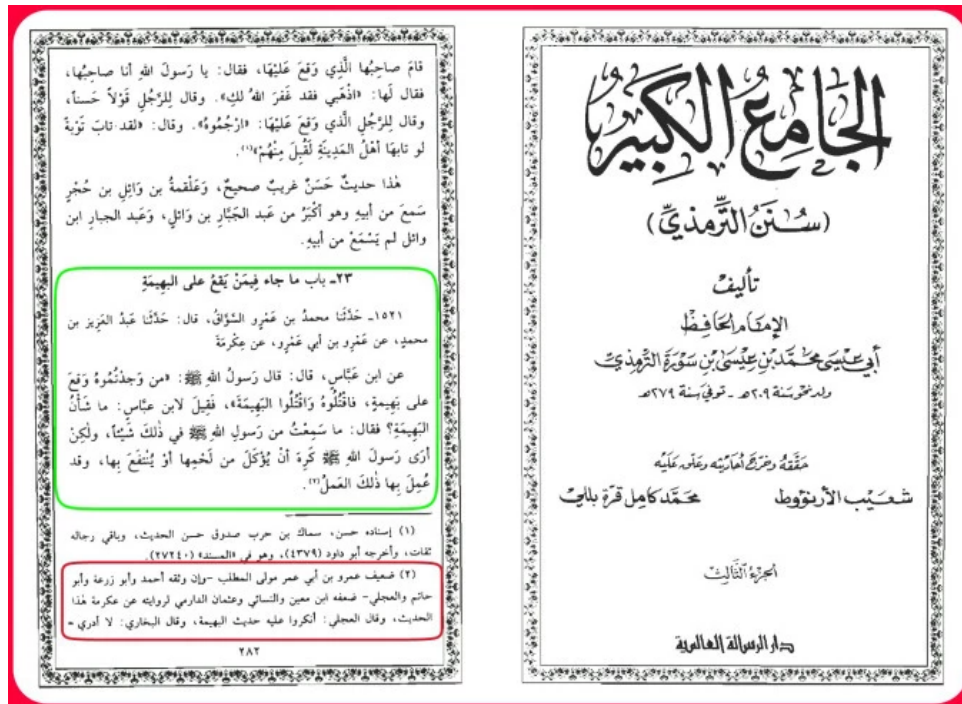 الجامع الكبير
(سنن الترمذي)
تأليف
الإمام الحافظ
أبي عيسى محمد بن عيسى بن سورة الترمذي
ولد نحو سنة ٢٠٩هـ - توفي سنة ٢٧٩هـ
حققه وخرج أحاديثه وعلق عليه
شعيب الأرنؤوط محمد كامل قره بللي
الجزء الثالث
دار الرسالة العالمية
قامَ صاحِبُها الَّذِي وَقعَ عَليْهَا، فقال: يا رَسولَ اللهِ أنا صاحِبُها،
فقال لَها: «اذْهَبي فقد غَفرَ اللهُ لكِ». وقال لِلرَّجُلِ قَوْلاً حَسناً،
وقال لِلرَّجُلِ الَّذي وَقعَ عَليْهَا: «ارْجُمُوهُ». وقال: «لقد تابَ تَوْبةً
لو تابهَا أهْلُ المَدِينَةِ لَقُبِلَ مِنْهُمْ»(١).
هٰذا حديثٌ حَسَنٌ غريبٌ صحيحٌ، وَعَلْقمةُ بن وَائِلِ بن حُجْرٍ
سَمعَ من أبيهِ وهو أكْبَرُ من عَبد الجَبَّارِ بن وَائلٍ، وَعَبد الجبار ابن
وائل لم يَسْمَعْ من أبيهِ.
٢٣- باب ما جاء فِيمَنْ يَقعُ على البَهِيمَةِ
١٥٢١- حَدَّثَنا محمدُ بن عَمْرٍو السَّوَّاقُ، قال: حَدَّثَنا عَبدُ العَزِيز بن
محمدٍ، عن عَمْرِو بن أبي عَمْرٍو، عن عِكْرمَةَ
عن ابن عَبَّاسٍ، قال: قال رَسولُ اللهِ ﷺ: «من وَجدْتُمُوهُ وَقعَ
على بَهِيمةٍ، فاقْتُلُوهُ وَاقْتُلُوا البَهِيمَةَ»، فَقِيلَ لابن عبَّاسٍ: ما شَأنُ
البَهِيمَةِ؟ فقال: ما سَمِعْتُ من رَسولِ اللهِ ﷺ في ذٰلكَ شَيْئاً، ولٰكِنْ
أرَى رَسولَ اللهِ ﷺ كَرِهَ أنْ يُؤْكَلَ من لَحْمِها أوْ يُنْتفَعَ بِها، وقد
عُمِلَ بِها ذٰلكَ العَملُ(٢).
(١) إسناده حسن، سماك بن حرب صدوق حسن الحديث، وباقي رجاله
ثقات، وأخرجه أبو داود (٤٣٧٩)، وهو في «المسند» (٢٧٢٤٠).
(٢) ضعيف عمرو بن أبي عمر مولى المطلب -وإن وثقه أحمد وأبو زرعة وأبو
حاتم والعجلي- ضعفه ابن معين والنسائي وعثمان الدارمي لروايته عن عكرمة هٰذا
الحديث، وقال العجلي: أنكروا عليه حديث البهيمة، وقال البخاري: لا أدري =
٢٨٢